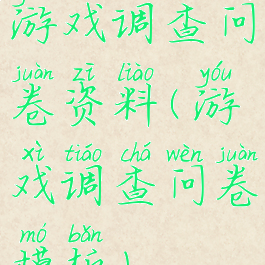 游戏调查问
juàn zī liào yóu
卷资料(游
xì tiáo chá wèn juàn
戏调查问卷
mó bǎn
模板)